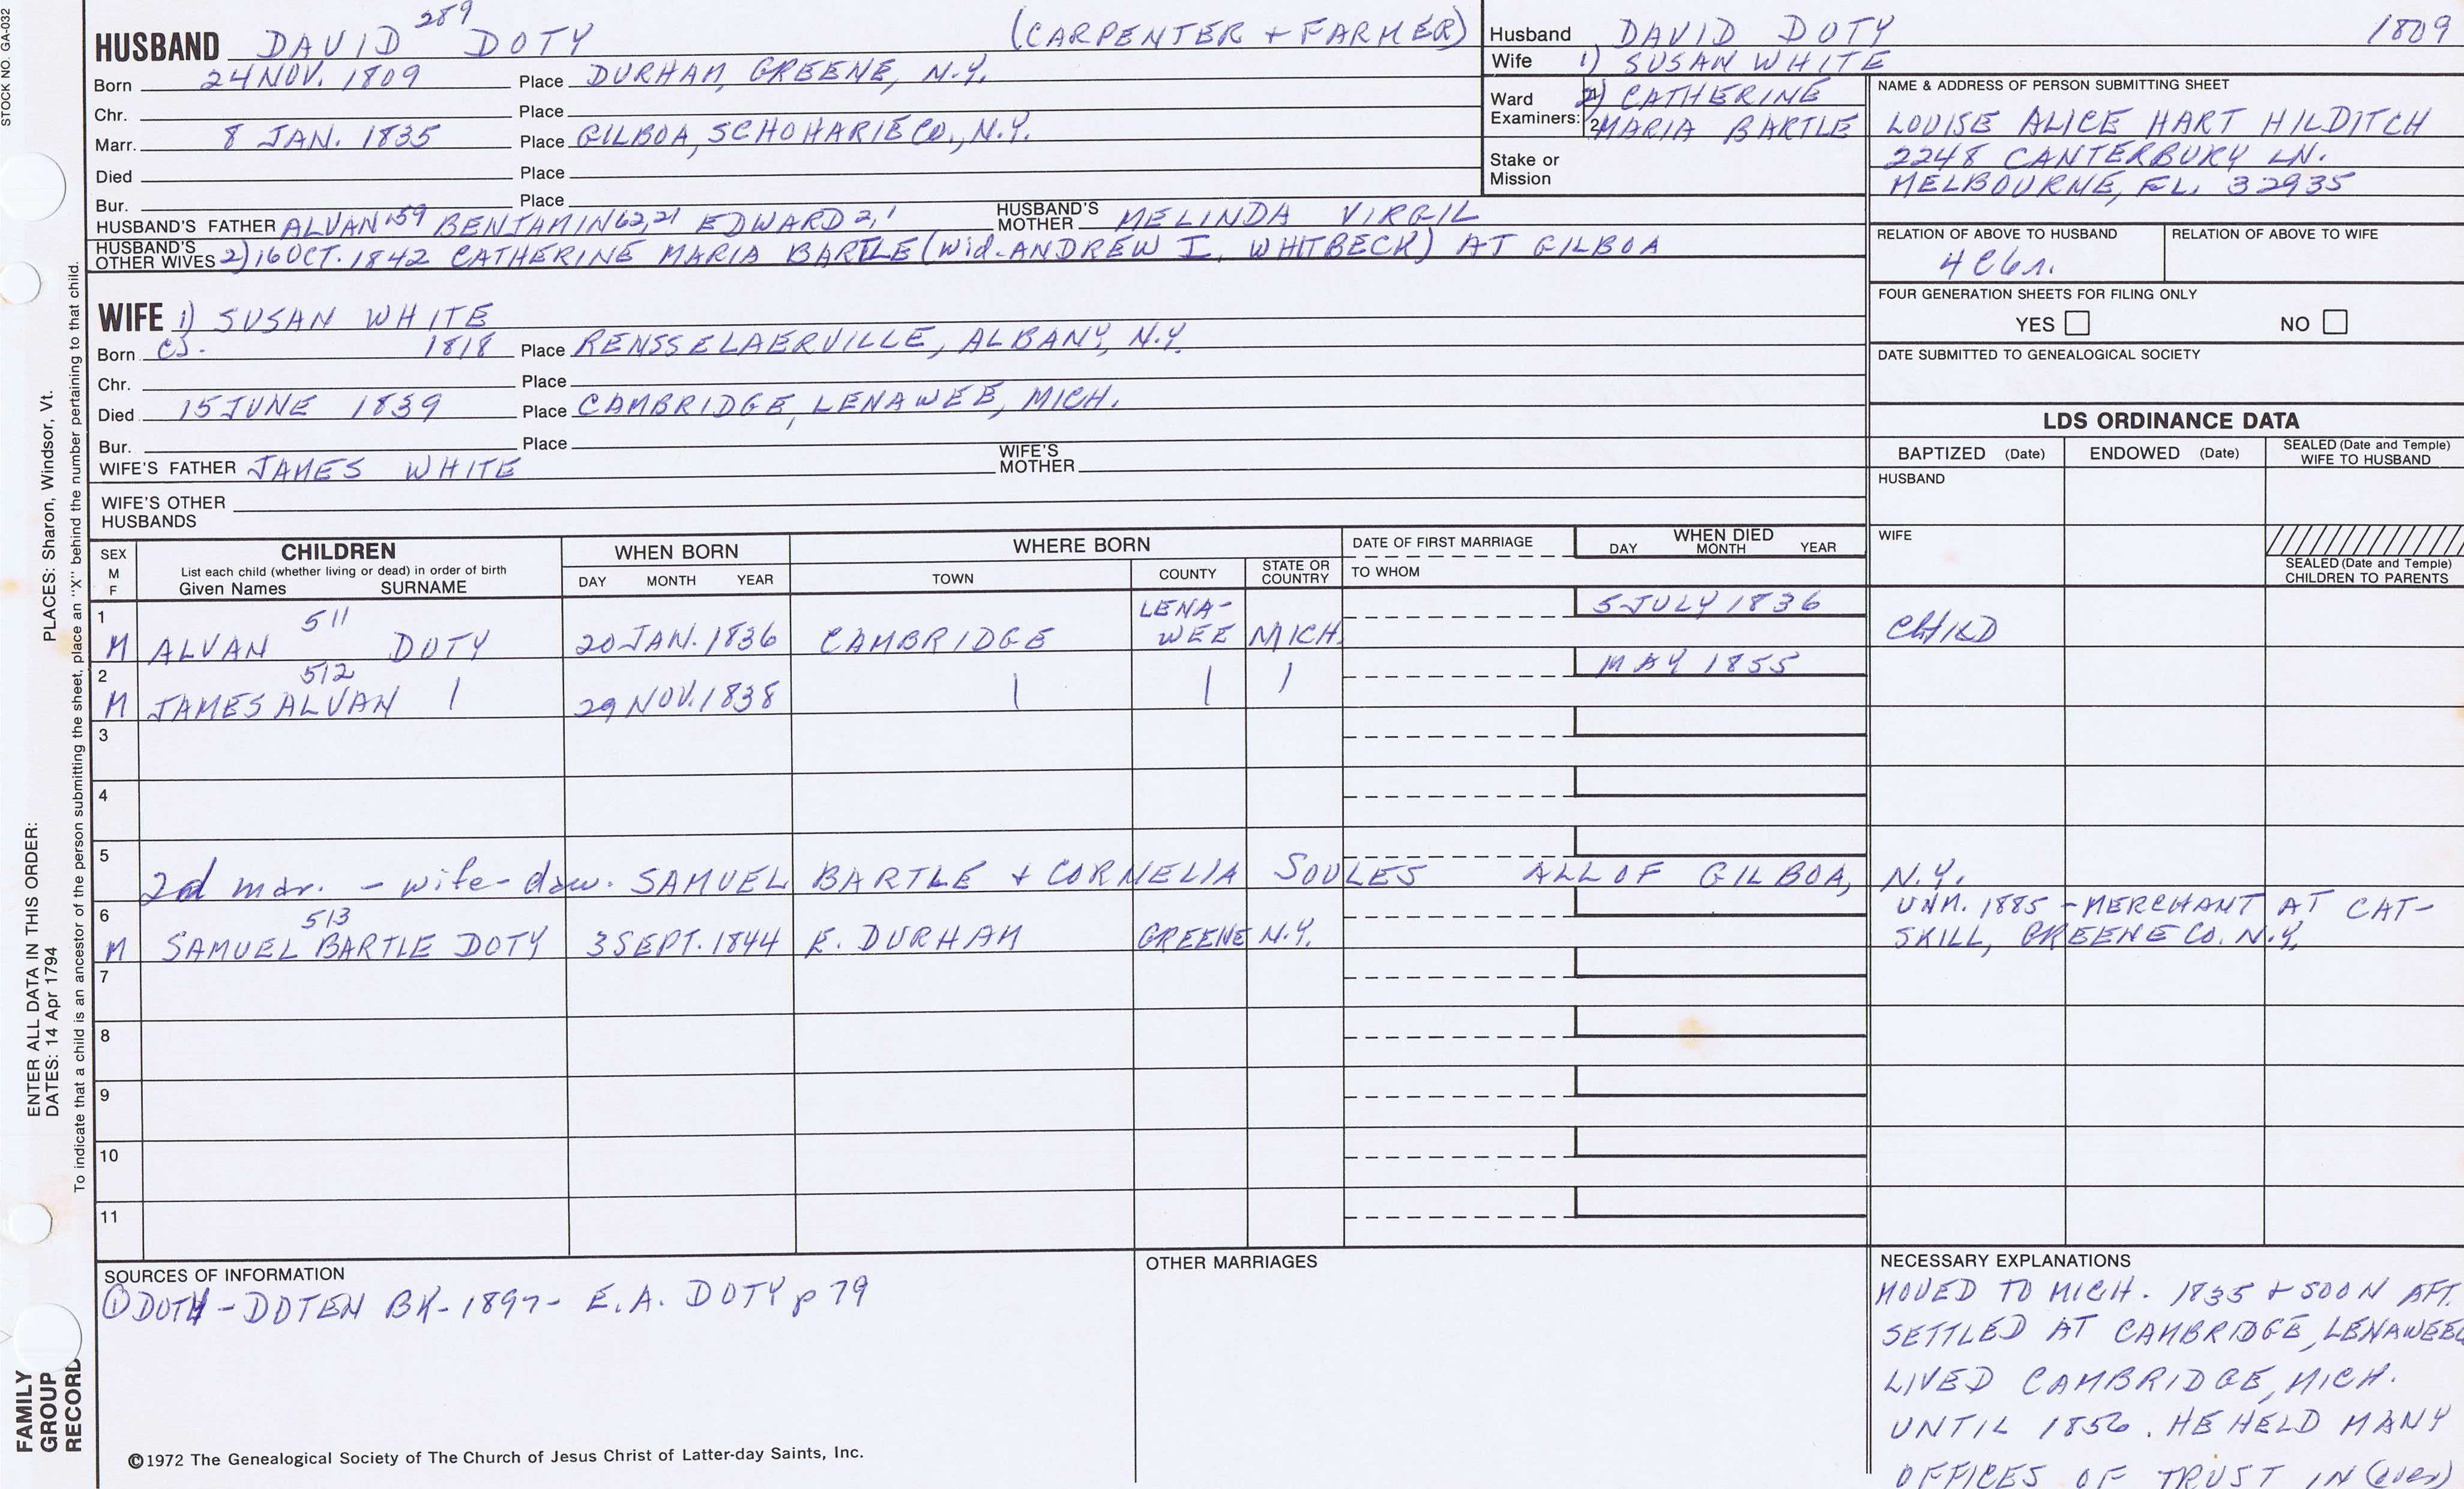 STOCK NO. GA-032
289
HUSBAND DAVID DOTY (CARPENTER + FARMER)
Born 24 NOV. 1809 Place DURHAM, GREENE, N.Y.
Chr. Place
Marr. 8 JAN. 1835 Place GILBOA, SCHOHARIE CO., N.Y.
Died Place
Bur. Place
HUSBAND'S FATHER ALVAN 159 BENJAMIN 62, 21 EDWARD 2, 1 HUSBAND'S MOTHER MELINDA VIRGIL
HUSBAND'S OTHER WIVES 2) 16 OCT. 1842 CATHERINE MARIA BARTLE (wid. ANDREW I. WHITBECK) AT GILBOA
WIFE 1) SUSAN WHITE
Born 1818 Place RENSSELAERVILLE, ALBANY, N.Y.
Chr. Place
Died 15 JUNE 1839 Place CAMBRIDGE, LENAWEE, MICH.
Bur. Place
WIFE'S FATHER JAMES WHITE WIFE'S MOTHER
WIFE'S OTHER HUSBANDS
Husband DAVID DOTY 1809
Wife 1) SUSAN WHITE
Ward 2) CATHERINE
Examiners: 2 MARIA BARTLE
Stake or Mission
NAME & ADDRESS OF PERSON SUBMITTING SHEET
LOUISE ALICE HART HILDITCH
2248 CANTERBURY LN.
MELBOURNE, FL. 32935
RELATION OF ABOVE TO HUSBAND RELATION OF ABOVE TO WIFE
FOUR GENERATION SHEETS FOR FILING ONLY
YES NO
DATE SUBMITTED TO GENEALOGICAL SOCIETY
LDS ORDINANCE DATA
BAPTIZED (Date) ENDOWED (Date) SEALED (Date and Temple) WIFE TO HUSBAND
HUSBAND
WIFE
SEALED (Date and Temple) CHILDREN TO PARENTS
SEX M F CHILDREN List each child (whether living or dead) in order of birth Given Names SURNAME WHEN BORN DAY MONTH YEAR WHERE BORN TOWN COUNTY STATE OR COUNTRY DATE OF FIRST MARRIAGE TO WHOM WHEN DIED DAY MONTH YEAR
1 511 LENA- 5 JULY 1836
M ALVAN DOTY 20 JAN. 1836 CAMBRIDGE WEE MICH. CHILD
2 512 MAY 1855
M JAMES ALVAN 29 NOV. 1838
3
4
5
2d mar. - wife - daw. SAMUEL BARTLE + CORNELIA SOULES ALL OF GILBOA, N.Y.
6 513 UNM. 1885 - MERCHANT AT CAT-
M SAMUEL BARTLE DOTY 3 SEPT. 1844 E. DURHAM GREENE N.Y. SKILL, GREENE CO. N.Y.
7
8
9
10
11
SOURCES OF INFORMATION
① DOTY - DOTEN BK - 1897 - E. A. DOTY p 79
OTHER MARRIAGES
NECESSARY EXPLANATIONS
MOVED TO MICH. 1835 + SOON AFT.
SETTLED AT CAMBRIDGE, LENAWEE
LIVED CAMBRIDGE, MICH.
UNTIL 1856. HE HELD MANY
OFFICES OF TRUST IN (over)
©1972 The Genealogical Society of The Church of Jesus Christ of Latter-day Saints, Inc.
FAMILY GROUP RECORD
ENTER ALL DATA IN THIS ORDER:
DATES: 14 Apr 1794 PLACES: Sharon, Windsor, Vt.
To indicate that a child is an ancestor of the person submitting the sheet, place an "X" behind the number pertaining to that child.